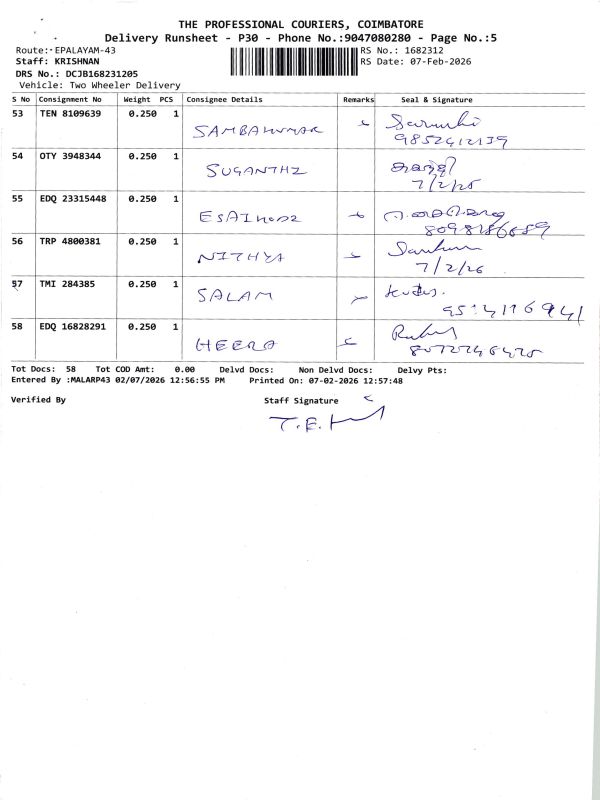 THE PROFESSIONAL COURIERS, COIMBATORE
Delivery Runsheet - P30 - Phone No.:9047080280 - Page No.:5
Route: EPALAYAM-43
RS No.: 1682312
Staff: KRISHNAN
RS Date: 07-Feb-2026
DRS No.: DCJB168231205
Vehicle: Two Wheeler Delivery
S No Consignment No Weight PCS Consignee Details Remarks Seal & Signature
53 TEN 8109639 0.250 1
54 OTY 3948344 0.250 1 SUGANTHI
7/2/26
55 EDQ 23315448 0.250 1
56 TRP 4800381 0.250 1 NITHYA
7/2/26
57 TMI 284385 0.250 1 SALAM
58 EDQ 16828291 0.250 1 HEERA
Tot Docs: 58 Tot COD Amt: 0.00 Delvd Docs: Non Delvd Docs: Delvy Pts:
Entered By :MALARP43 02/07/2026 12:56:55 PM Printed On: 07-02-2026 12:57:48
Verified By Staff Signature